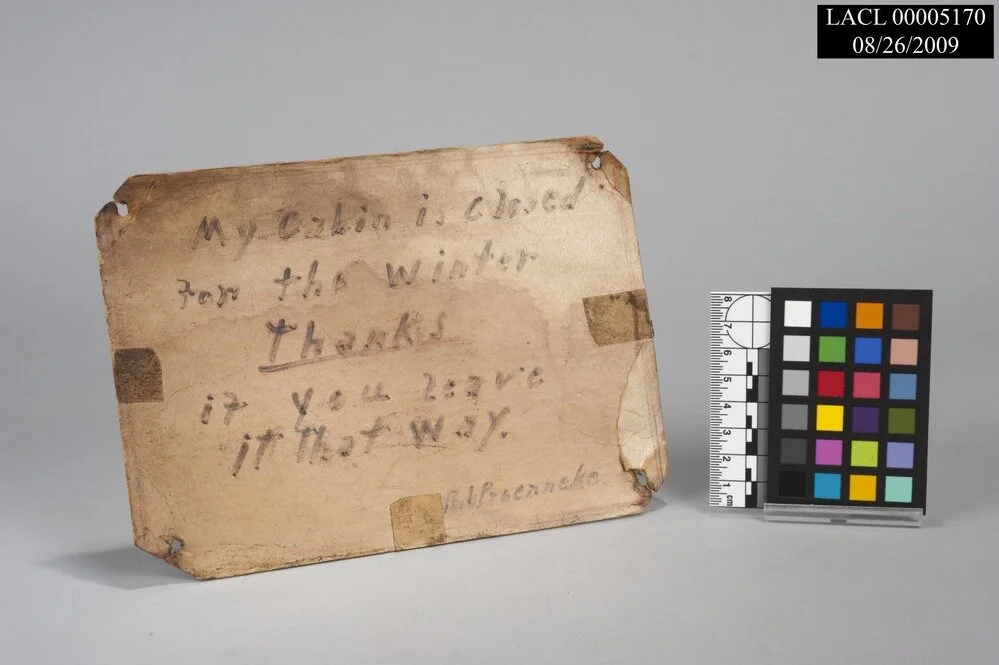 LACL 00005170
08/26/2009
My Cabin is closed
For the winter
thanks
if you leave
it that way.
R.L. Proenneke
8
7
6
5
4
3
2
1
cm